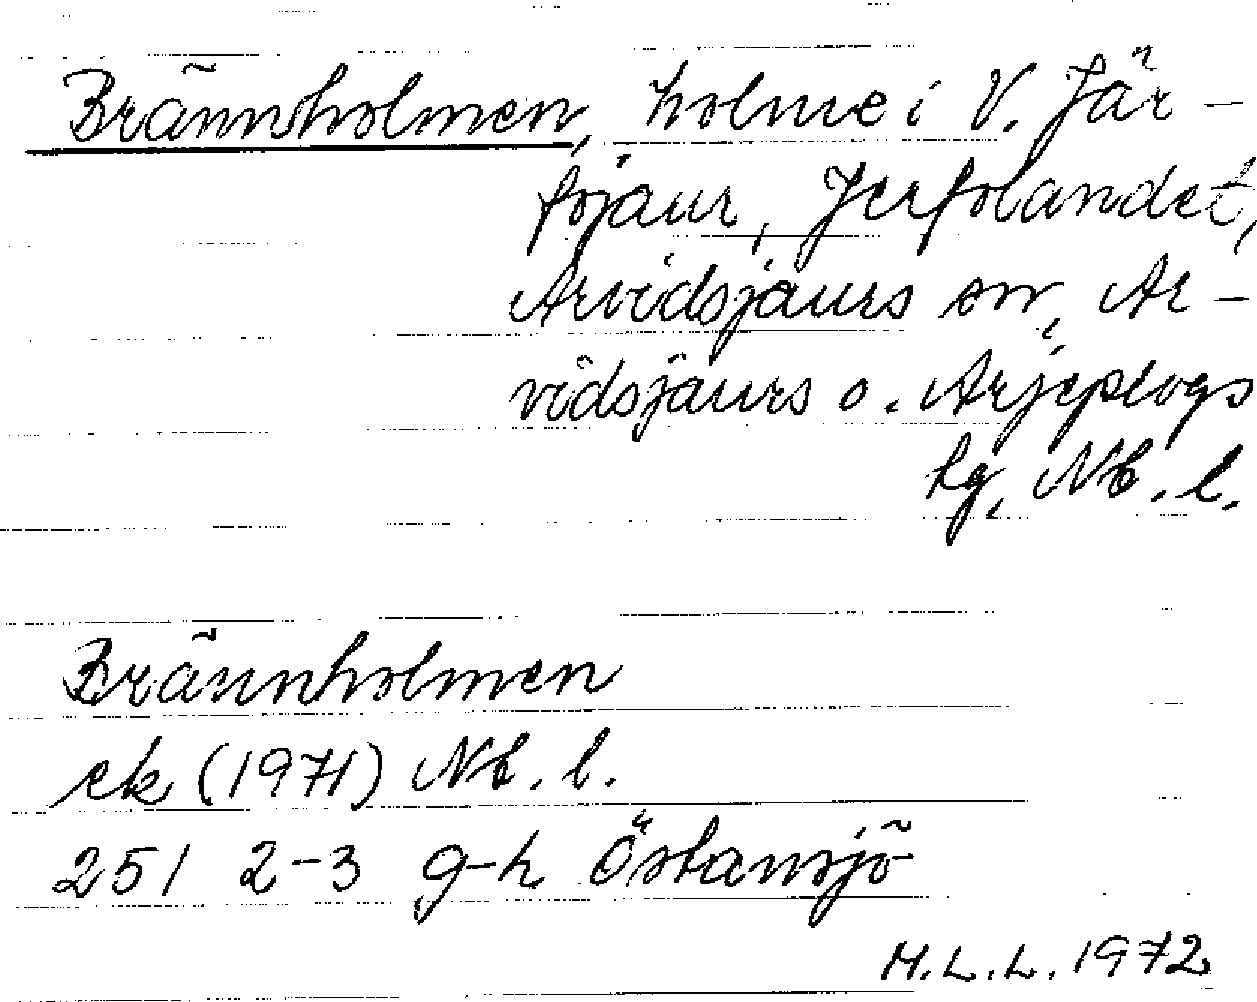 Brännholmen, holme i V. Jär-
fojaur, Jerfolandet,
Arvidsjaurs sn, Ar-
vidsjaurs o. Arjeplogs
lg, Nb. l.
Brännholmen
ek (1971) Nb. l.
251 2-3 g-h Östansjö
M.L.L. 1972